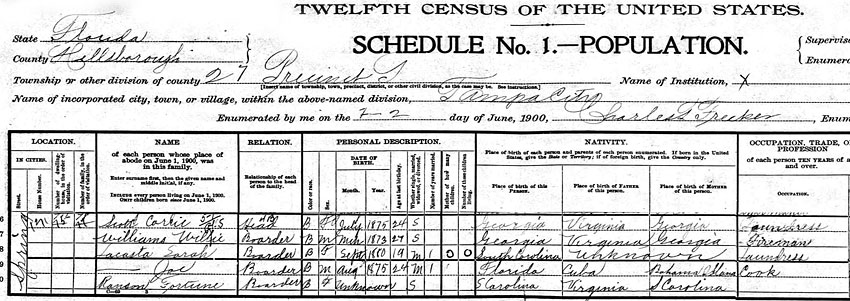 TWELFTH CENSUS OF THE UNITED STATES.
State Florida
County Hillsborough
SCHEDULE No. 1.—POPULATION.
Supervisor
Enumera
Township or other division of county 27 Precinct
[Insert name of township, town, precinct, district, or other civil division, as the case may be. See instructions.]
Name of Institution, X
Name of incorporated city, town, or village, within the above-named division, Tampa City
Enumerated by me on the 2 day of June, 1900, Charles
Enum
LOCATION. NAME RELATION. PERSONAL DESCRIPTION. NATIVITY. OCCUPATION, TRADE, OR PROFESSION
IN CITIES.
Street.
House Number.
Number of dwelling-house, in the order of visitation.
Number of family, in the order of visitation.
of each person whose place of abode on June 1, 1900, was in this family.
Enter surname first, then the given name and middle initial, if any.
Include every person living on June 1, 1900.
Omit children born since June 1, 1900.
Relationship of each person to the head of the family.
Color or race.
Sex.
DATE OF BIRTH.
Month. Year.
Age at last birthday.
Number of years married.
Mother of how many children.
Number of these children living.
Place of birth of each person and parents of each person enumerated. If born in the United States, give the State or Territory; if of foreign birth, give the Country only.
Place of birth of this Person.
Place of birth of Father of this person.
Place of birth of Mother of this person.
of each person TEN YEARS of age and over.
Occupation.
Scott Carrie Head B July 1875 24 S Georgia Virginia Georgia Laundress
Williams Willie Boarder B M Mch 1873 27 S Georgia Virginia Georgia Fireman
Lacasta Sarah Boarder B F Sept 1880 19 M 1 0 0 South Carolina Unknown Laundress
— Joe Boarder B M Aug 1875 24 M 1 Florida Cuba Cook
Ransom Fortune Boarder B F Unknown S S Carolina Virginia S Carolina